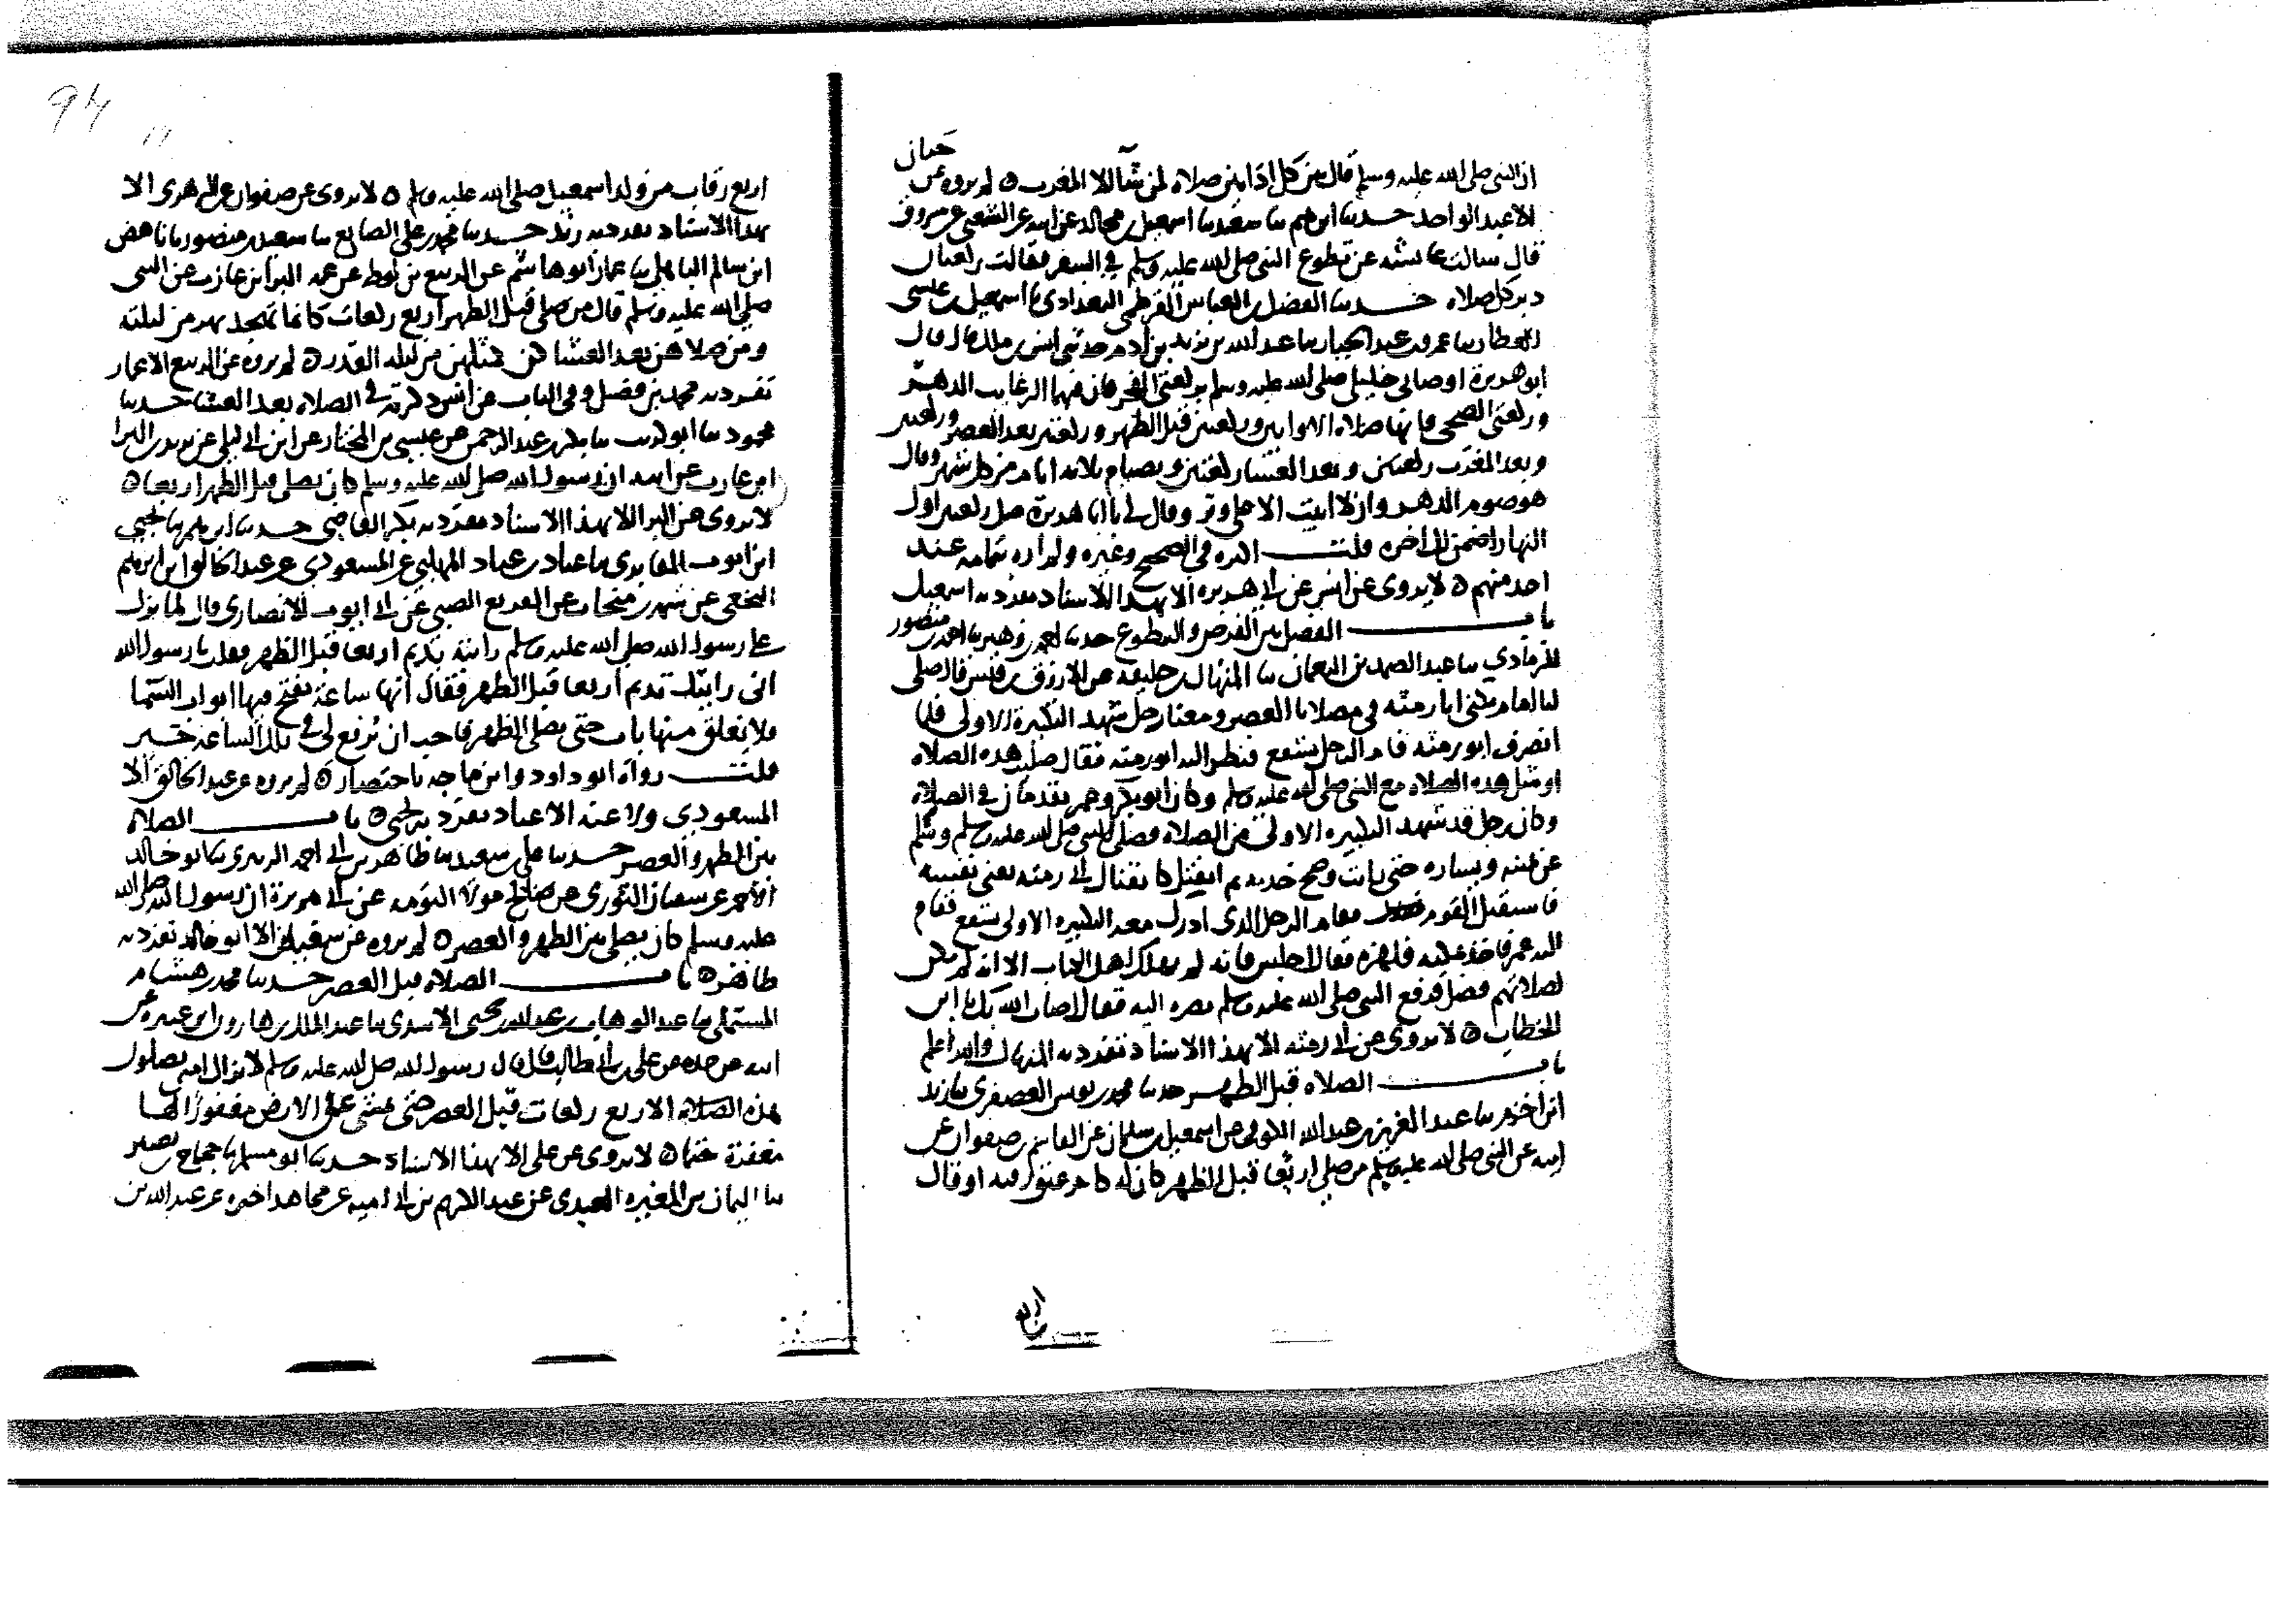 حيان
ان النبي صلى الله عليه وسلم قال بين كل اذانين صلاه لمن شا الا المغرب ه لم يروه عن
الا عبد الواحد حدثنا ابرهيم ثنا سعيد ثنا اسمعيل بن مجالد عن ابيه عن الشعبي عن مسروق
قال سالت عايشه عن تطوع النبي صلى الله عليه وسلم في السفر فقالت ركعتان
دبر كل صلاه حدثنا الفضل بن العباس القرطمي البغدادي ثنا اسمعيل بن عيسى
العطار ثنا عمرو بن عبد الجبار ثنا عبد الله بن يزيد بن ادم حدثني انس بن ملك قال قال
ابو هريرة اوصاني خليلي صلى الله عليه وسلم بركعتي الفجر فان فيهما الرغايب الدهر
وركعتي الضحى فانها صلاه الاوابين وركعتين قبل الظهر وركعتين بعد العصر وركعتين
وبعد المغرب ركعتين وبعد العشا ركعتين وبصيام ثلاثه ايام من كل شهر وقال
هو صوم الدهر وان لا ابيت الا على وتر وقال لي يا ابا هريرة صل ركعتين اول
النهار اضمن لك اخره قلت اكثره في الصحيح وغيره ولم اره بتمامه عند
احد منهم ه لا يروى عن انس عن ابي هريره الا بهذا الاسناد تفرد به اسمعيل
باب الفصل بين الفرض والتطوع حدثنا احمد بن زهير ثنا احمد بن منصور
الرمادي ثنا عبد الصمد بن النعمان ثنا المنهال بن خليفه عن الازرق بن قيس قال صلى
لنا امام يكنى ابا رمثه في مصلانا العصر ومعنا رجل شهد التكبيرة الاولى فلما
انصرف ابو رمثه قام الرجل يشفع فنظر اليه ابو رمثه فقال صليت هذه الصلاه
او مثل هذه الصلاه مع النبي صلى الله عليه وسلم وكان ابو بكر وعمر يقدمان في الصلاه
وكان رجل قد شهد التكبيره الاولى من الصلاه فصلى النبي صلى الله عليه وسلم وسلم
عن يمينه ويساره حتى بان وضح خديه ثم انفتل كما يفتال ابي رمثه يعني نفسه
فاستقبل القوم فقام الرجل الذي ادرك معه التكبيره الاولى يشفع فقام
اليه عمر فاخذ منكبيه فلهزه فقال اجلس فانه لم يهلك اهل الكتاب الا انه لم يكن
لصلاتهم فصل فرفع النبي صلى الله عليه وسلم بصره اليه فقال اصاب الله بك يا ابن
الخطاب ه لا يروى عن ابي رمثه الا بهذا الاسناد تفرد به المنهال والله اعلم
باب الصلاه قبل الظهر حدثنا محمد بن يونس العصفري ثنا زيد
ابن اخزم ثنا عبد العزيز بن عبد الله الكوفي عن اسمعيل بن سلمان عن القاسم بن صفوان عن
ابيه عن النبي صلى الله عليه وسلم من صلى اربعا قبل الظهر كان له كاجر عتق رقبه او قال
اربع
اربع رقاب من ولد اسمعيل صلى الله عليه وسلم ه لا يروى عن صفوان عن الزهري الا
بهذا الاسناد تفرد به زيد حدثنا محمد بن علي الصايغ ثنا سعيد بن منصور ثنا ناهض
ابن سالم الباهلي ثنا عمار ابو هاشم عن الربيع بن لوط عن عمه البرا بن عازب عن النبي
صلى الله عليه وسلم قال من صلى قبل الظهر اربع ركعات كانما تهجد بهن من ليلته
ومن صلاهن بعد العشا كن كمثلهن من ليله القدر ه لم يروه عن الربيع الا عمار
تفرد به محمد بن فضل وفي الباب عن انس ذكرته في الصلاه بعد العشا حدثنا
محمود ثنا ابو كريب ثنا بكر بن عبد الرحمن عن عيسى بن المختار عن ابن ابي ليلى عن يزيد بن البرا
ابن عازب عن ابيه ان رسول الله صلى الله عليه وسلم كان يصلي قبل الظهر اربعا ه
لا يروى عن البرا الا بهذا الاسناد تفرد به بكر القاضي حدثنا ابرهيم ثنا يحيى
ابن ايوب المقابري ثنا عباد بن عباد المهلبي عن المسعودي عن عبد الخالق ابن ابرهيم
النخعي عن سهم بن منجاب عن القرثع الضبي عن ابي ايوب الانصاري قال لما نزل
علي رسول الله صلى الله عليه وسلم رايته يديم اربعا قبل الظهر فقلت يا رسول الله
اني رايتك تديم اربعا قبل الظهر فقال انها ساعة تفتح فيها ابواب السما
فلا يغلق منها باب حتى يصلى الظهر فاحب ان يرفع لي في تلك الساعة خير
قلت رواه ابو داود وابن ماجه باختصار ه لم يروه عن عبد الخالق الا
المسعودي ولا عنه الا عباد تفرد به يحيى ه باب الصلاه
بين الظهر والعصر حدثنا علي بن سعيد ثنا طاهر بن ابي احمد الزبيري ثنا ابو خالد
الاحمر عن سفيان الثوري عن صالح مولا التومه عن ابي هريرة ان رسول الله صلى الله
عليه وسلم كان يصلي بين الظهر والعصر ه لم يروه عن سفيان الا ابو خالد تفرد به
طاهر ه باب الصلاه قبل العصر حدثنا محمد بن هشام
المستملي ثنا عبد الوهاب بن عبد الله بن يحيى الاسدي ثنا عبد الملك بن هارون ابن عنتره عن
ابيه عن جده عن علي بن ابي طالب قال قال رسول الله صلى الله عليه وسلم لا تزال امتي يصلون
هذه الصلاه الاربع ركعات قبل العصر حتى تمشي على الارض مغفورا لها
مغفرة حتما ه لا يروى عن علي الا بهذا الاسناد حدثنا ابو مسلم ثنا حجاج بن نصير
ثنا اليمان بن المغيره العبدي عن عبد الكريم بن ابي اميه عن مجاهد اخبره عن عبد الله بن